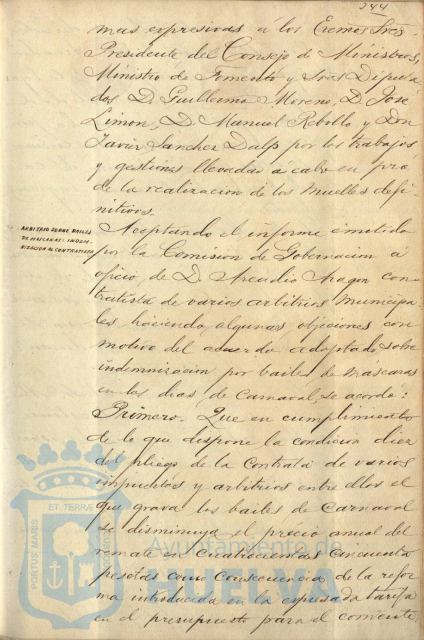 244
mas expresivas á los Excmos Sres
Presidente del Consejo de Ministros,
Ministro de Fomento y Sres Diputa
dos D. Guillermo Moreno, D. José
Limon, D. Manuel Rebollo y Don
Javier Sanchez Dalp por los trabajos
y gestiones llevadas á cabo en pró
de la realizacion de los muelles defi-
nitivos.
ARBITRIO SOBRE BAILES
DE MASCARAS: INDEM-
NIZACION AL CONTRATISTA
Aceptando el informe emitido
por la Comision de Gobernacion á
oficio, de D. Arcadio Aragon con-
tratista de varios arbitrios municipa-
les haciendo algunas objeciones con
motivo del acuerdo adoptado, sobre
indemnizacion por bailes de mascaras
en los dias de Carnaval, se acordó:
Primero. Que en cumplimiento
de lo que dispone la condicion diez
del pliego de la contrata de varios
impuestos y arbitrios entre ellos el
que grava los bailes de Carnaval
se disminuya el précio anual del
remate en cuatrocientas cincuenta
pesetas como consecuencia de la refor
ma introducida en la expresada tarifa
en el presupuesto para el corriente
PORTUS MARIS ET TERRAE CUSTODIA
Ayuntamiento de
HUELVA